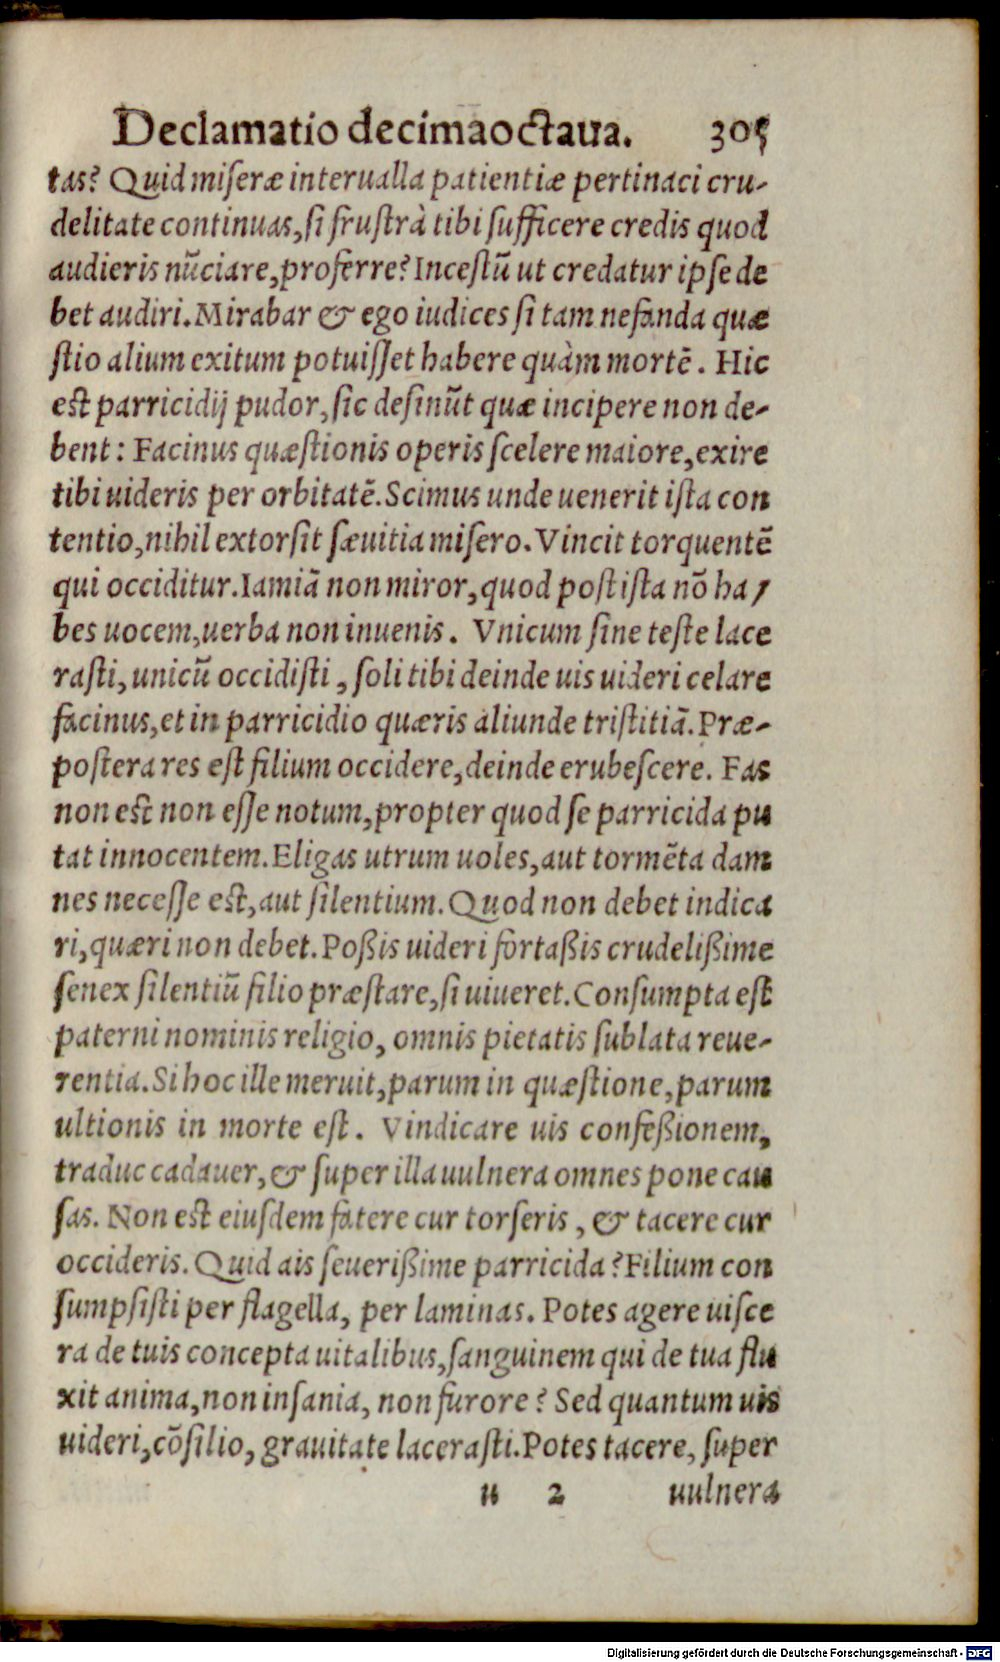 Declamatio decimaoctaua. 305
tas? Quid miseræ interualla patientiæ pertinaci cru-
delitate continuas, si frustrà tibi sufficere credis quod
audieris nūciare, proferre? Incestū ut credatur ipse de
bet audiri. Mirabar & ego iudices si tam nefanda quæ
stio alium exitum potuisset habere quàm mortē. Hic
est parricidij pudor, sic desinūt quæ incipere non de-
bent: Facinus quæstionis operis scelere maiore, exire
tibi uideris per orbitatē. Scimus unde uenerit ista con
tentio, nihil extorsit sæuitia misero. Vincit torquentē
qui occiditur. Iamiā non miror, quod post ista nō ha-
bes uocem, uerba non inuenis. Vnicum sine teste lace
rasti, unicū occidisti, soli tibi deinde uis uideri celare
facinus, et in parricidio quæris aliunde tristitiā. Præ-
postera res est filium occidere, deinde erubescere. Fas
non est non esse notum, propter quod se parricida pu
tat innocentem. Eligas utrum uoles, aut tormēta dam
nes necesse est, aut silentium. Quod non debet indica
ri, quæri non debet. Poßis uideri fortaßis crudelißime
senex silentiū filio præstare, si uiueret. Consumpta est
paterni nominis religio, omnis pietatis sublata reue-
rentia. Si hoc ille meruit, parum in quæstione, parum
ultionis in morte est. Vindicare uis confeßionem,
traduc cadauer, & super illa uulnera omnes pone cau
sas. Non est eiusdem fatere cur torseris, & tacere cur
occideris. Quid ais seuerißime parricida? Filium con
sumpsisti per flagella, per laminas. Potes agere uisce
ra de tuis concepta uitalibus, sanguinem qui de tua flu
xit anima, non insania, non furore? Sed quantum uis
uideri, cōsilio, grauitate lacerasti. Potes tacere, super
u 2 uulnera
Digitalisierung gefördert durch die Deutsche Forschungsgemeinschaft - DFG